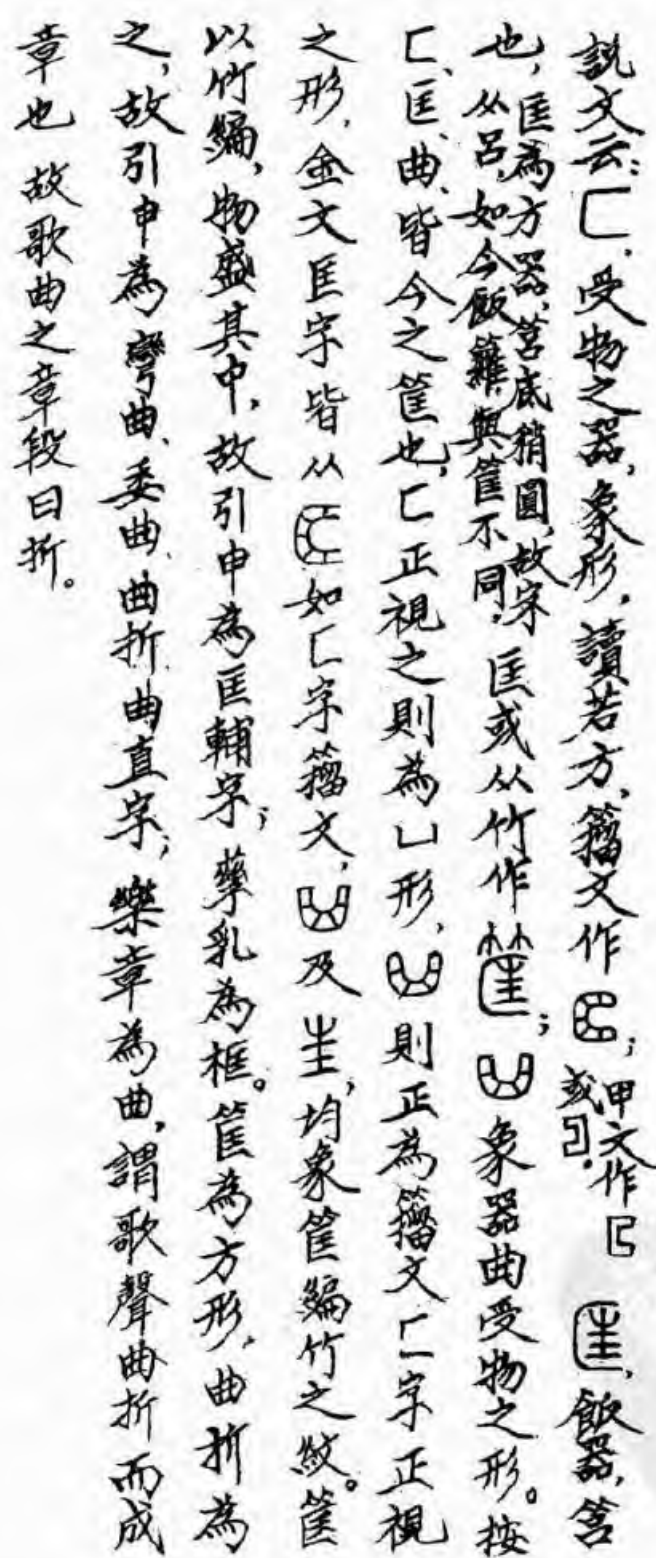 說文云：匚，受物之器，象形，讀若方，籀文作；甲文作或。匡，飯器，筥
也，匡為方器，筥底稍圓，故字从呂，如今飯籮與筐不同。匡或从竹作筐；象器曲受物之形。按
匚、匡、曲、皆今之筐也，匚正視之則為凵形，則正為籀文匚字正視
之形，金文匡字皆从如匚字籀文，及，均象筐編竹之紋。筐
以竹編，物盛其中，故引申為匡輔字；孳乳為框。筐為方形，曲折為
之，故引申為彎曲、委曲、曲折、曲直字；樂章為曲，謂歌聲曲折而成
章也 故歌曲之章段曰折。